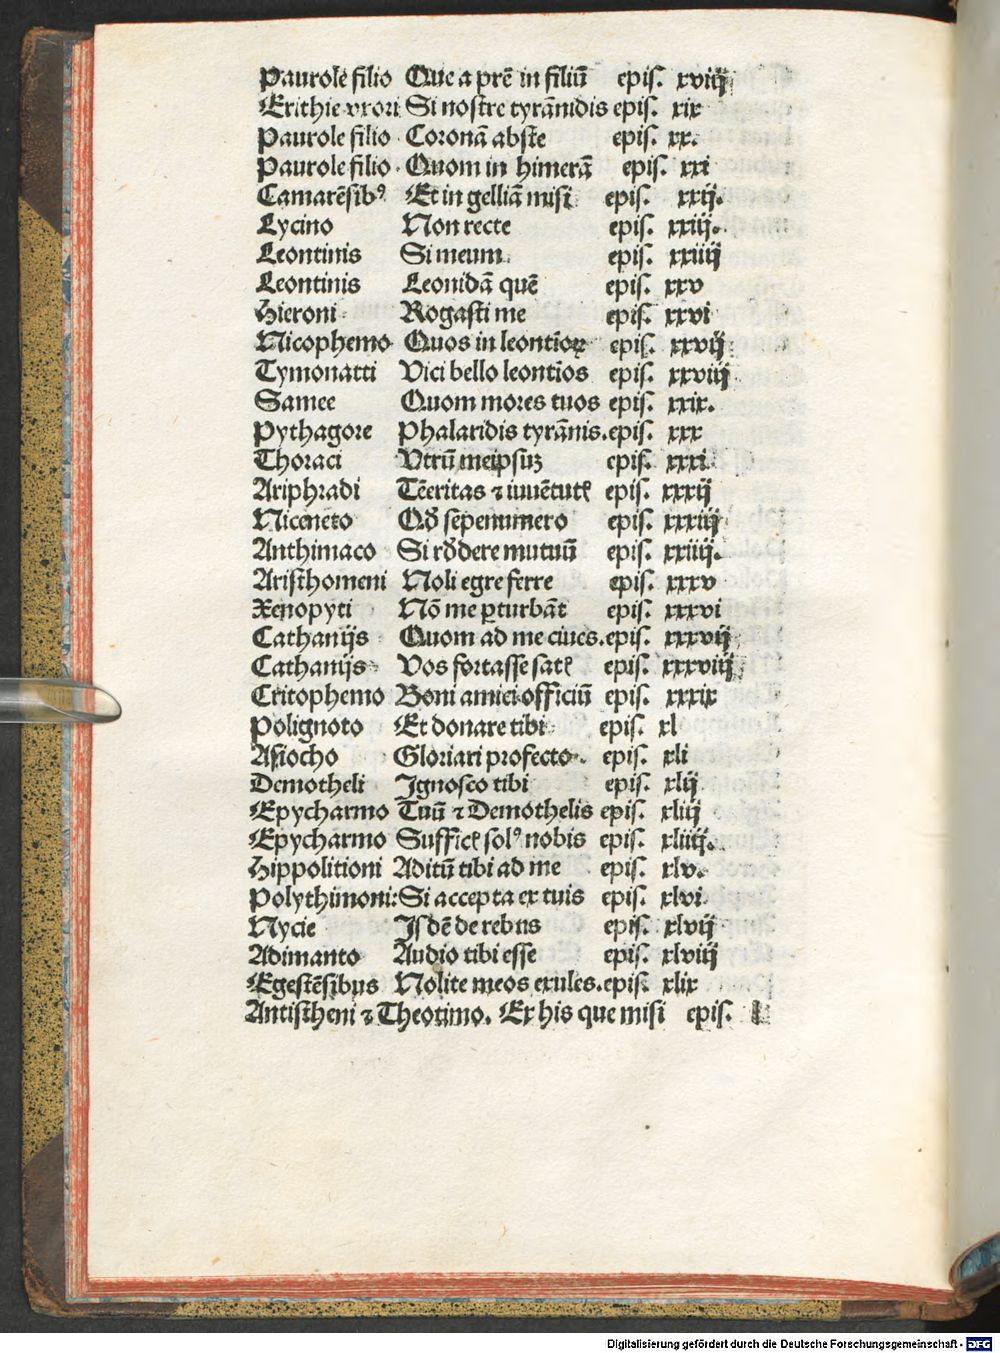 Paurole filio Que a prē in filiū epis. xviij
Erithie vxori Si nostre tyrānidis epis. xix
Paurole filio Coronā abste epis. xx.
Paurole filio Quom in himerā epis. xxi
Camarēsibꝰ Et in gelliā misi epis. xxij.
Lycino Non recte epis. xxiij.
Leontinis Si meum epis. xxiiij
Leontinis Leonidā quē epis. xxv
Hieroni Rogasti me epis. xxvi
Nicophemo Quos in leontioꝝ epis. xxvij
Tymonatti Vici bello leontios epis. xxviij
Samee Quom mores tuos epis. xxix.
Pythagore Phalaridis tyrānis. epis. xxx
Thoraci Vtrū meipsuꝫ epis. xxxi
Ariphradi Tēeritas ⁊ iuuētutꝭ epis. xxxij
Niceneto Qđ sepenumero epis. xxxiij
Anthimaco Si rđdere mutuū epis. xxiiij.
Aristhomeni Noli egre ferre epis. xxxv
Xenopyti Nō me ꝑturbāt epis. xxxvi
Cathanijs Quom ad me ciues. epis. xxxvij
Cathanijs Vos fortasse satꝭ epis. xxxviij
Critophemo Boni amici officiū epis. xxxix
Polignoto Et donare tibi epis. xl
Asiocho Gloriari profecto. epis. xli
Demotheli Ignosco tibi epis. xlij
Epycharmo Tuū ⁊ Demothelis epis. xliij
Epycharmo Sufficꝭ solꝰ nobis epis. xliiij.
Hippolitioni Aditū tibi ad me epis. xlv.
Polythimoni: Si accepta ex tuis epis. xlvi
Nycie Isdē de rebus epis. xlvij
Adimanto Audio tibi esse epis. xlviij
Egestēsibus Nolite meos exules. epis. xlix
Antistheni ⁊ Theotimo. Ex his que misi epis. l
Digitalisierung gefördert durch die Deutsche Forschungsgemeinschaft - DFG